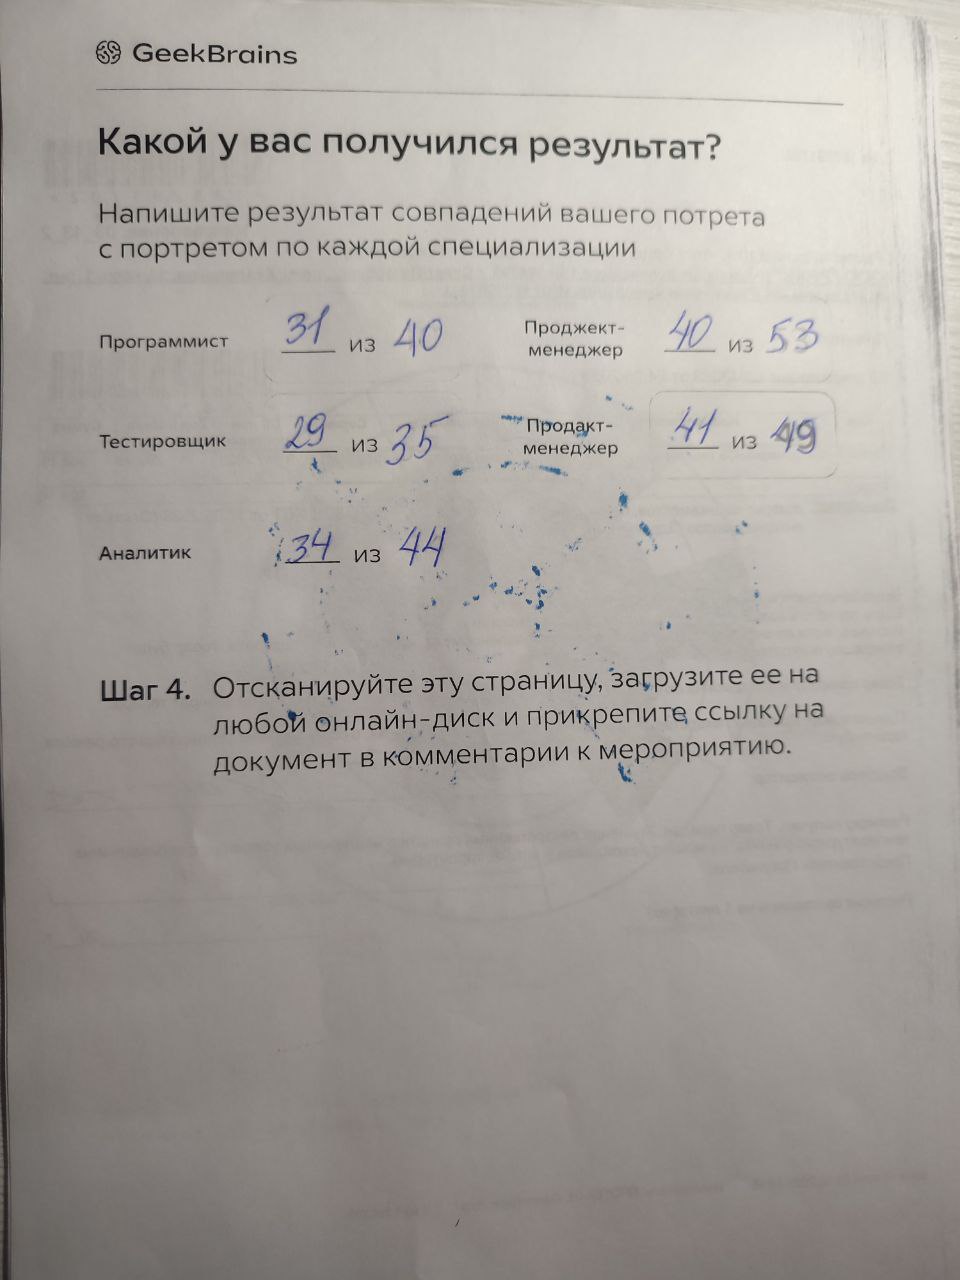 GeekBrains
Какой у вас получился результат?
Напишите результат совпадений вашего потрета
с портретом по каждой специализации
Программист 31 из 40
Проджект-
менеджер 40 из 53
Тестировщик 29 из 35
Продакт-
менеджер 41 из 49
Аналитик 34 из 44
Шаг 4. Отсканируйте эту страницу, загрузите ее на
любой онлайн-диск и прикрепите ссылку на
документ в комментарии к мероприятию.